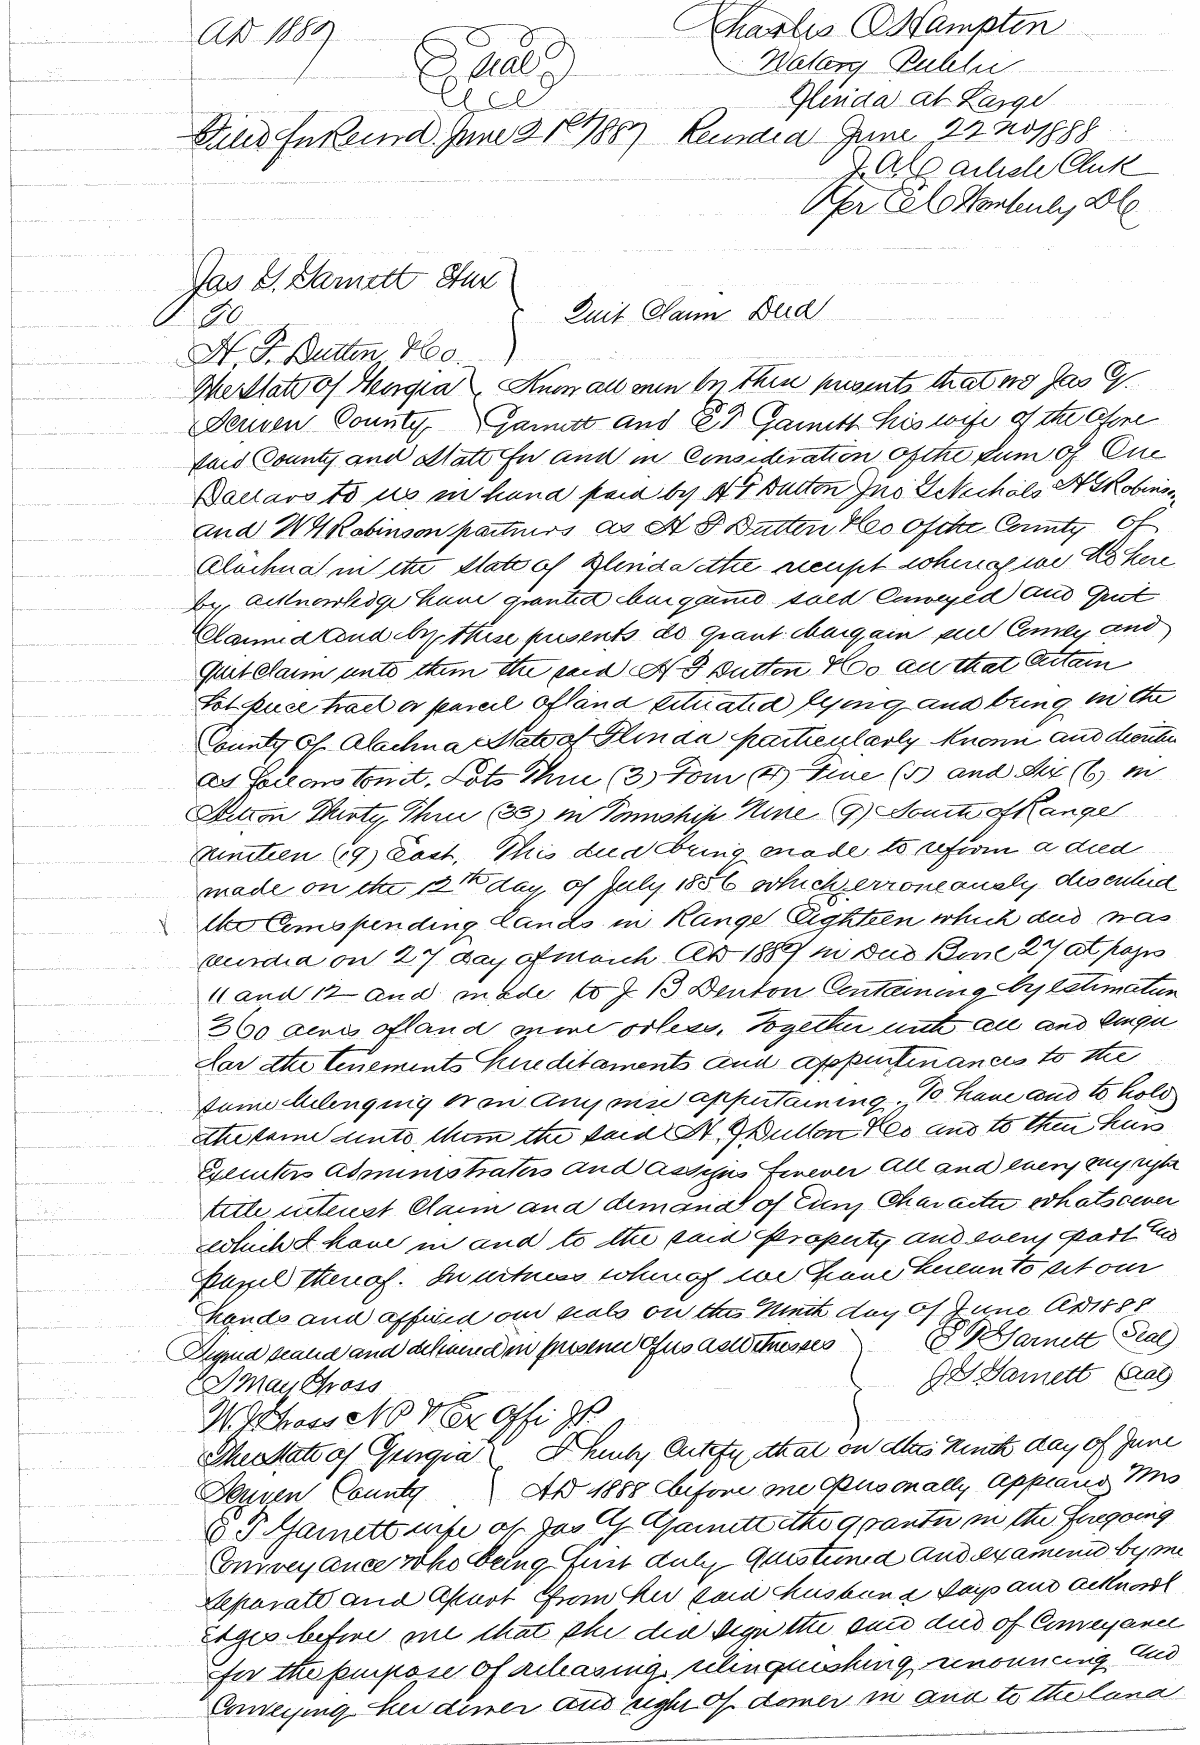 AD 1889
Charles O Hampton
Seal
Notary Public
Florida at Large
Filed for Record June 21st 1889 Recorded June 22nd 1888
J. A. Carlisle Clerk
Per DC
Jas G. Garnett & ux
To
Quit Claim Deed
H. F. Dutton & Co.
The State of Georgia Know all men by these presents that we Jas G.
Screven County, Garnett and E P Garnett his wife of the afore
said County and State for and in Consideration of the sum of One
Dollars to us in hand paid by H F Dutton Jno G Nichols H G Robinson
and W G Robinson partners as H F Dutton & Co of the County of
Alachua in the State of Florida the receipt whereof we do here
by acknowledge have granted bargained sold Conveyed and Quit
Claimed and by these presents do grant bargain sell Convey and
Quit Claim unto them the said H F Dutton & Co all that Certain
Lot piece tract or parcel of land situated lying and being in the
County of Alachua State of Florida particularly Known and describe
as follows towit. Lots Three (3) Four (4) Five (5) and Six (6) in
Section Thirty Three (33) in Township Nine (9) South of Range
nineteen (19) East. This deed being made to reform a deed
made on the 12th day of July 1886 which erroneously described
the Corresponding Lands in Range Eighteen which deed was
recorded on 27 day of March AD 1889 in Deed Book 27 at pages
11 and 12 and made to J B Denton Containing by estimation
360 acres of land more or less. Together with all and singu
lar the tenements hereditaments and appurtenances to the
same belonging or in anywise appertaining. To have and to hold
the same unto them the said H. F Dutton & Co and to their heirs
Executors administrators and assigns forever All and every my right
title interest Claim and demand of Every Character whatsoever
which I have in and to the said Property and every part and
parcel thereof. In witness whereof we have hereunto set our
hands and affixed our seals on this Ninth day of June AD 1888
Signed sealed and delivered in presence of us as Witnesses E P Garnett (Seal)
J G Garnett (Seal)
May Gross
W. J Gross N P & Ex Offi J P.
The State of Georgia I hereby Certify that on this Ninth day of June
Screven County AD 1888 before me personally appeared Mrs
E P Garnett wife of Jas G Garnett the grantor in the foregoing
Conveyance who being first duly Questioned and examined by me
separate and apart from her said husband says and acknowl
edges before me that she did sign the said deed of Conveyance
for the purpose of releasing, relinquishing, renouncing and
Conveying her dower and right of dower in and to the land